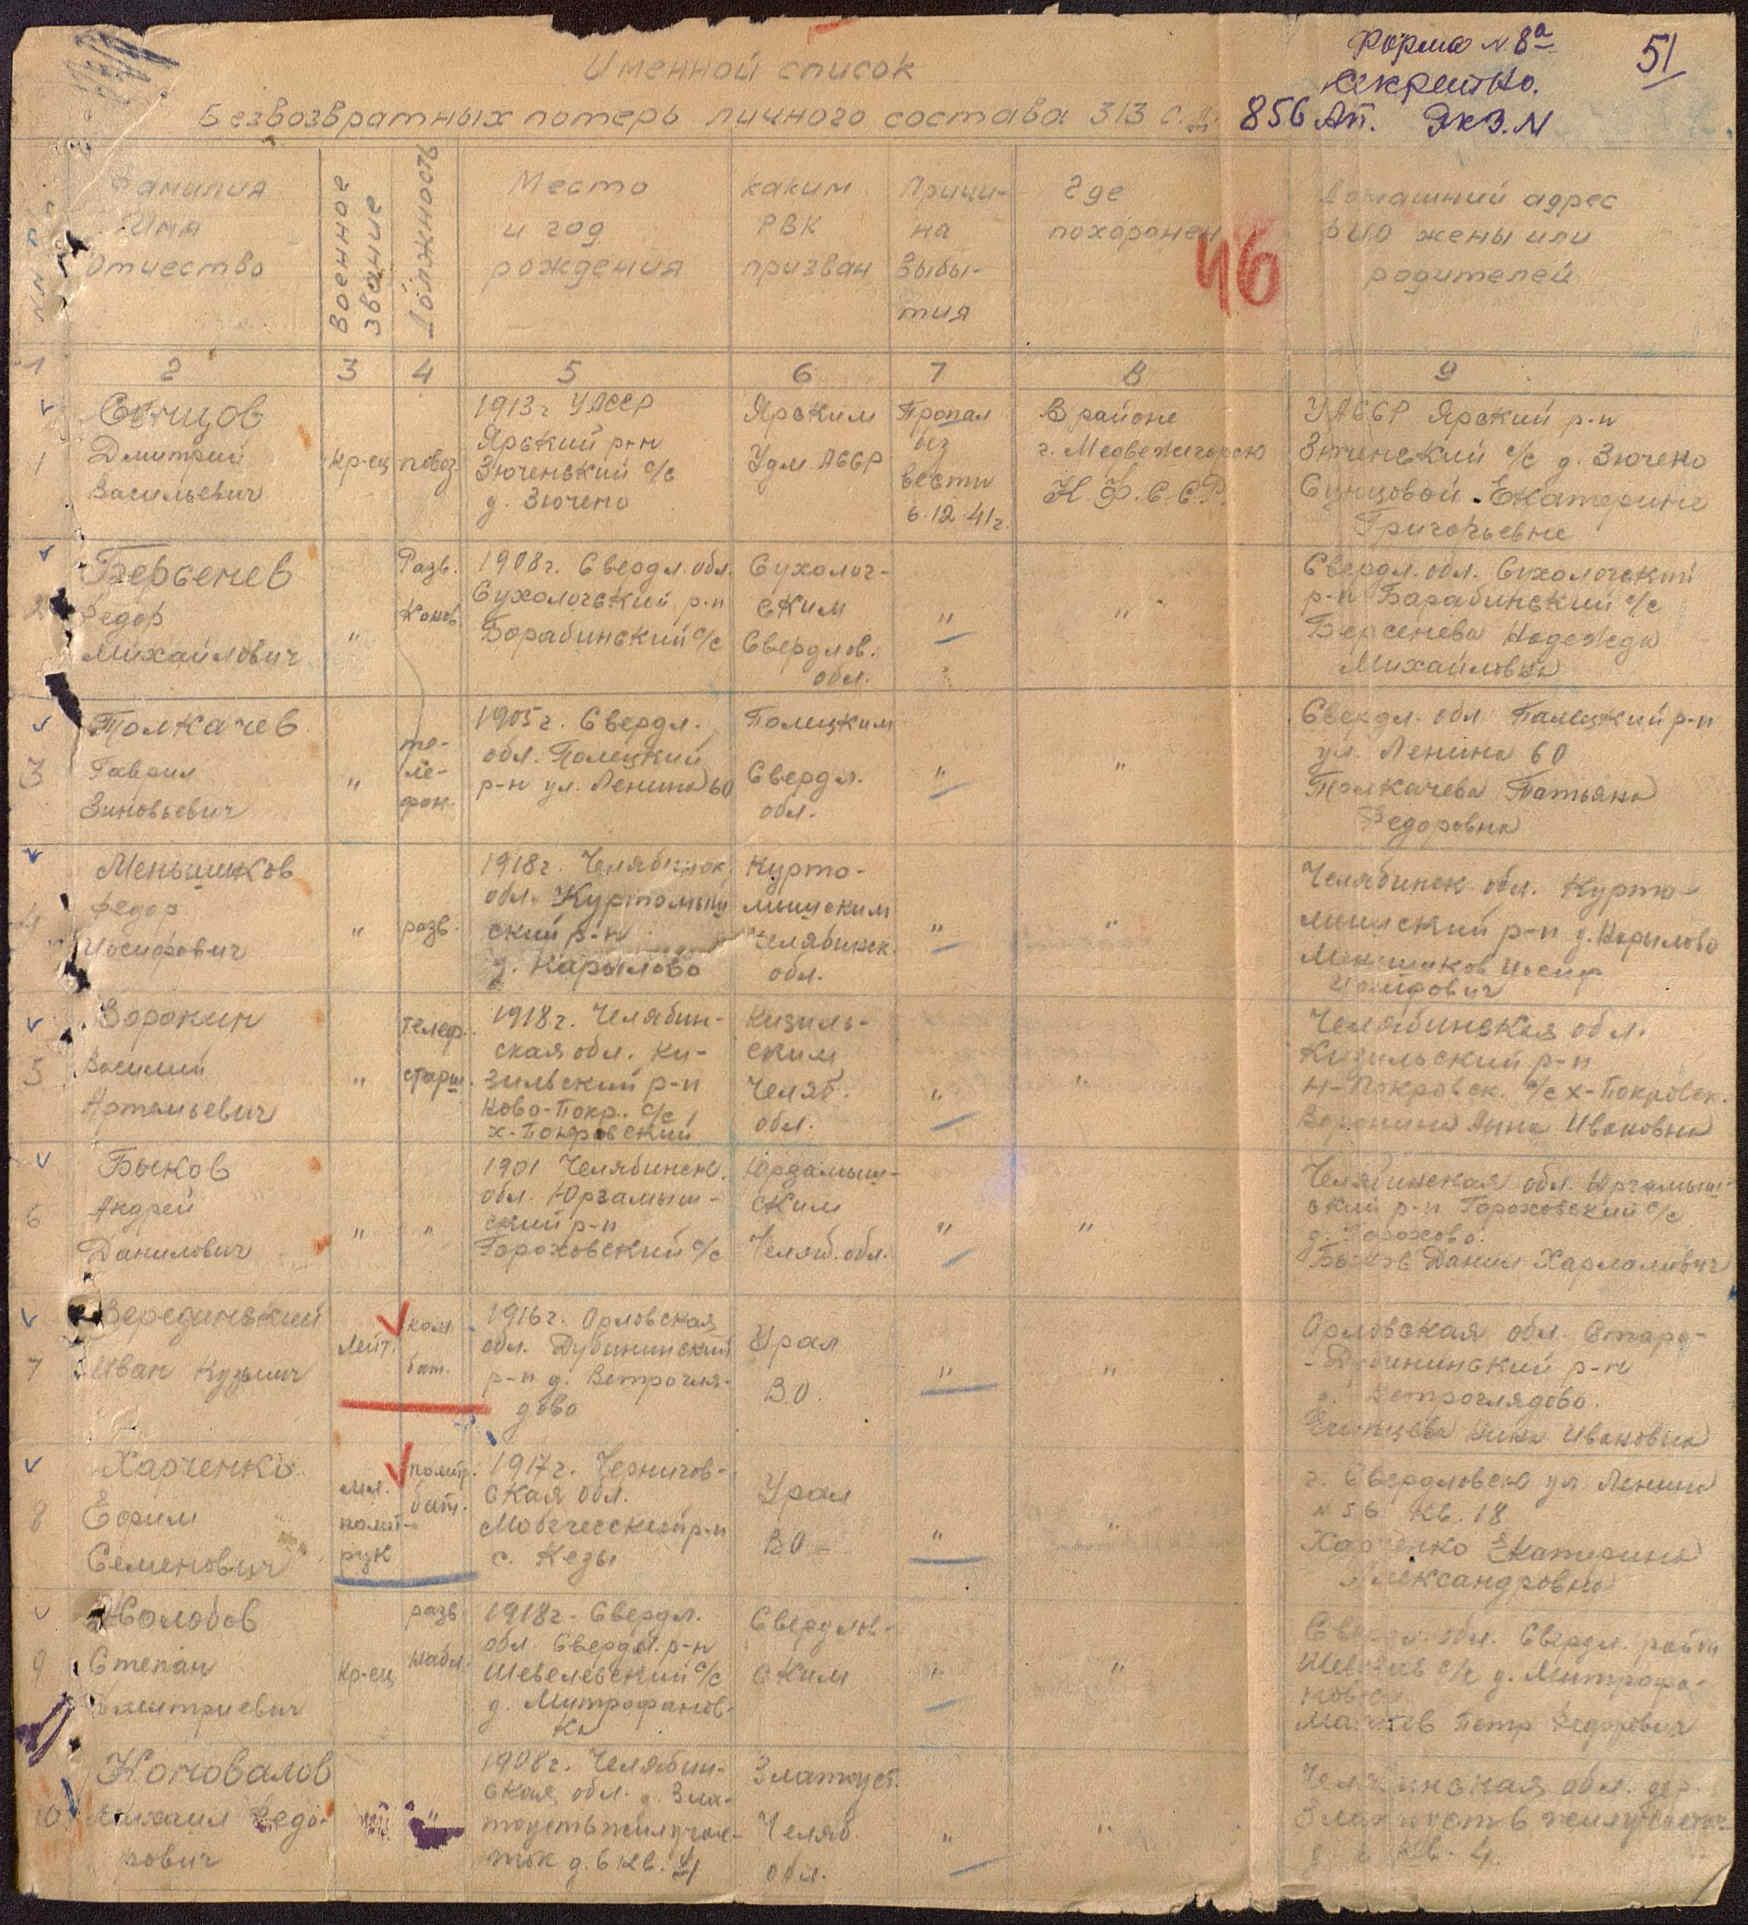 Форма N 8а
51
Секретно.
Именной список
Безвозвратных потерь личного состава 313 с.д. 856 Ап. Экз. N
NN п/п
Фамилия
Имя
Отчество
Военное
звание
Должность
Место
и год
рождения
каким
РВК
призван
Причи-
на
выбы-
тия
Где
похоронен
46
Домашний адрес
ФИО жены или
родителей
1 2 3 4 5 6 7 8 9
1
Сунцов
Дмитрий
Васильевич
Кр-ец
повоз.
1913 г УАССР
Ярский р-н
Зюченский с/с
д. Зючено
Ярским
Удм. АССР
Пропал
без
вести
6.12.41г.
В районе
г. Медвежегорск
К.Ф.С.С.Р.
УАССР Ярский р-н
Зюченский с/с д. Зючено
Сунцовой Екатерине
Григорьевне
2
Берсенев
Федор
Михайлович
"
Разв.
Конов.
1908г. Свердл. обл.
Сухоложский р-н
Борабинский с/с
Сухолож-
ским
Свердлов.
обл.
"
"
Свердл. обл. Сухоложский
р-н Барабинский с/с
Берсенева Надежда
Михайловна
3
Толкачев
Гаврил
Зиновьевич
"
те-
ле-
фон.
1905г. Свердл.
обл. Талецкий
р-н ул. Ленина 60
Талецким
Свердл.
обл.
"
"
Свердл. обл Талецкий р-н
ул. Ленина 60
Толкачева Татьяна
Федоровна
4
Меньшиков
Федор
Иосифович
"
разв.
1918г. Челябинск.
обл. Куртамыш
ский р-н
д. Карылово
Курта-
мышским
Челябинск.
обл.
"
"
Челябинск обл. Курта-
мышский р-н д. Карылово
Меньшиков Иосиф
5
Воронин
Василий
Артемьевич
"
телеф.
старш.
1918г. Челябин-
ская обл. Ки-
зильский р-н
Ново-Покр. с/с
х-Покровский
Кизиль-
ским
Челяб.
обл.
"
"
Челябинская обл.
Кизильский р-н
Н-Покровск. с/с х-Покровск.
Воронина Анна Ивановна
6
Быков
Андрей
Данилович
"
"
1901 Челябинск.
обл. Юргамыш-
ский р-н
Гороховский с/с
Юргамыш-
ским
Челяб. обл.
"
"
Челябинская обл. Юргамыш-
ский р-н Гороховский с/с
д. Горохово.
Быков Данил Харламович
7
Верединский
Иван Кузьмич
Лейт.
ком
бат.
1916г. Орловская
обл. Дубининский
р-н д. Ветрогля-
дово
Урал
В.О.
"
"
Орловская обл. Старо-
-Дубининский р-н
д. Ветроглядово.
Нина Ивановна
8
Харченко
Ефим
Семенович
мл.
полит-
рук
политр.
бат.
1917г. Чернигов-
ская обл.
р-н
с. Кезы
Урал
ВО
"
"
г. Свердловск ул Ленина
N 56 Кв. 18
Харченко Екатерина
Александровна
9
Жолобов
Степан
Дмитриевич
Кр-ец
разв
набл.
1918г. Свердл.
обл. Свердл. р-н
Шевелевский с/с
д. Митрофанов-
ка
Свердлов-
ским
"
"
Свердл. обл. Свердл. район
Шевелев с/с д. Митрофа-
новка
Петр Федорович
10
Коновалов
Михаил Федо-
рович
"
1908г. Челябин-
ская обл. г. Зла-
тоуст жилучас-
ток д. 6 кв. 4
Златоуст.
Челяб.
обл.
"
"
Челябинская обл. гор.
Златоуст жилучасток
д. 6 Кв. 4.